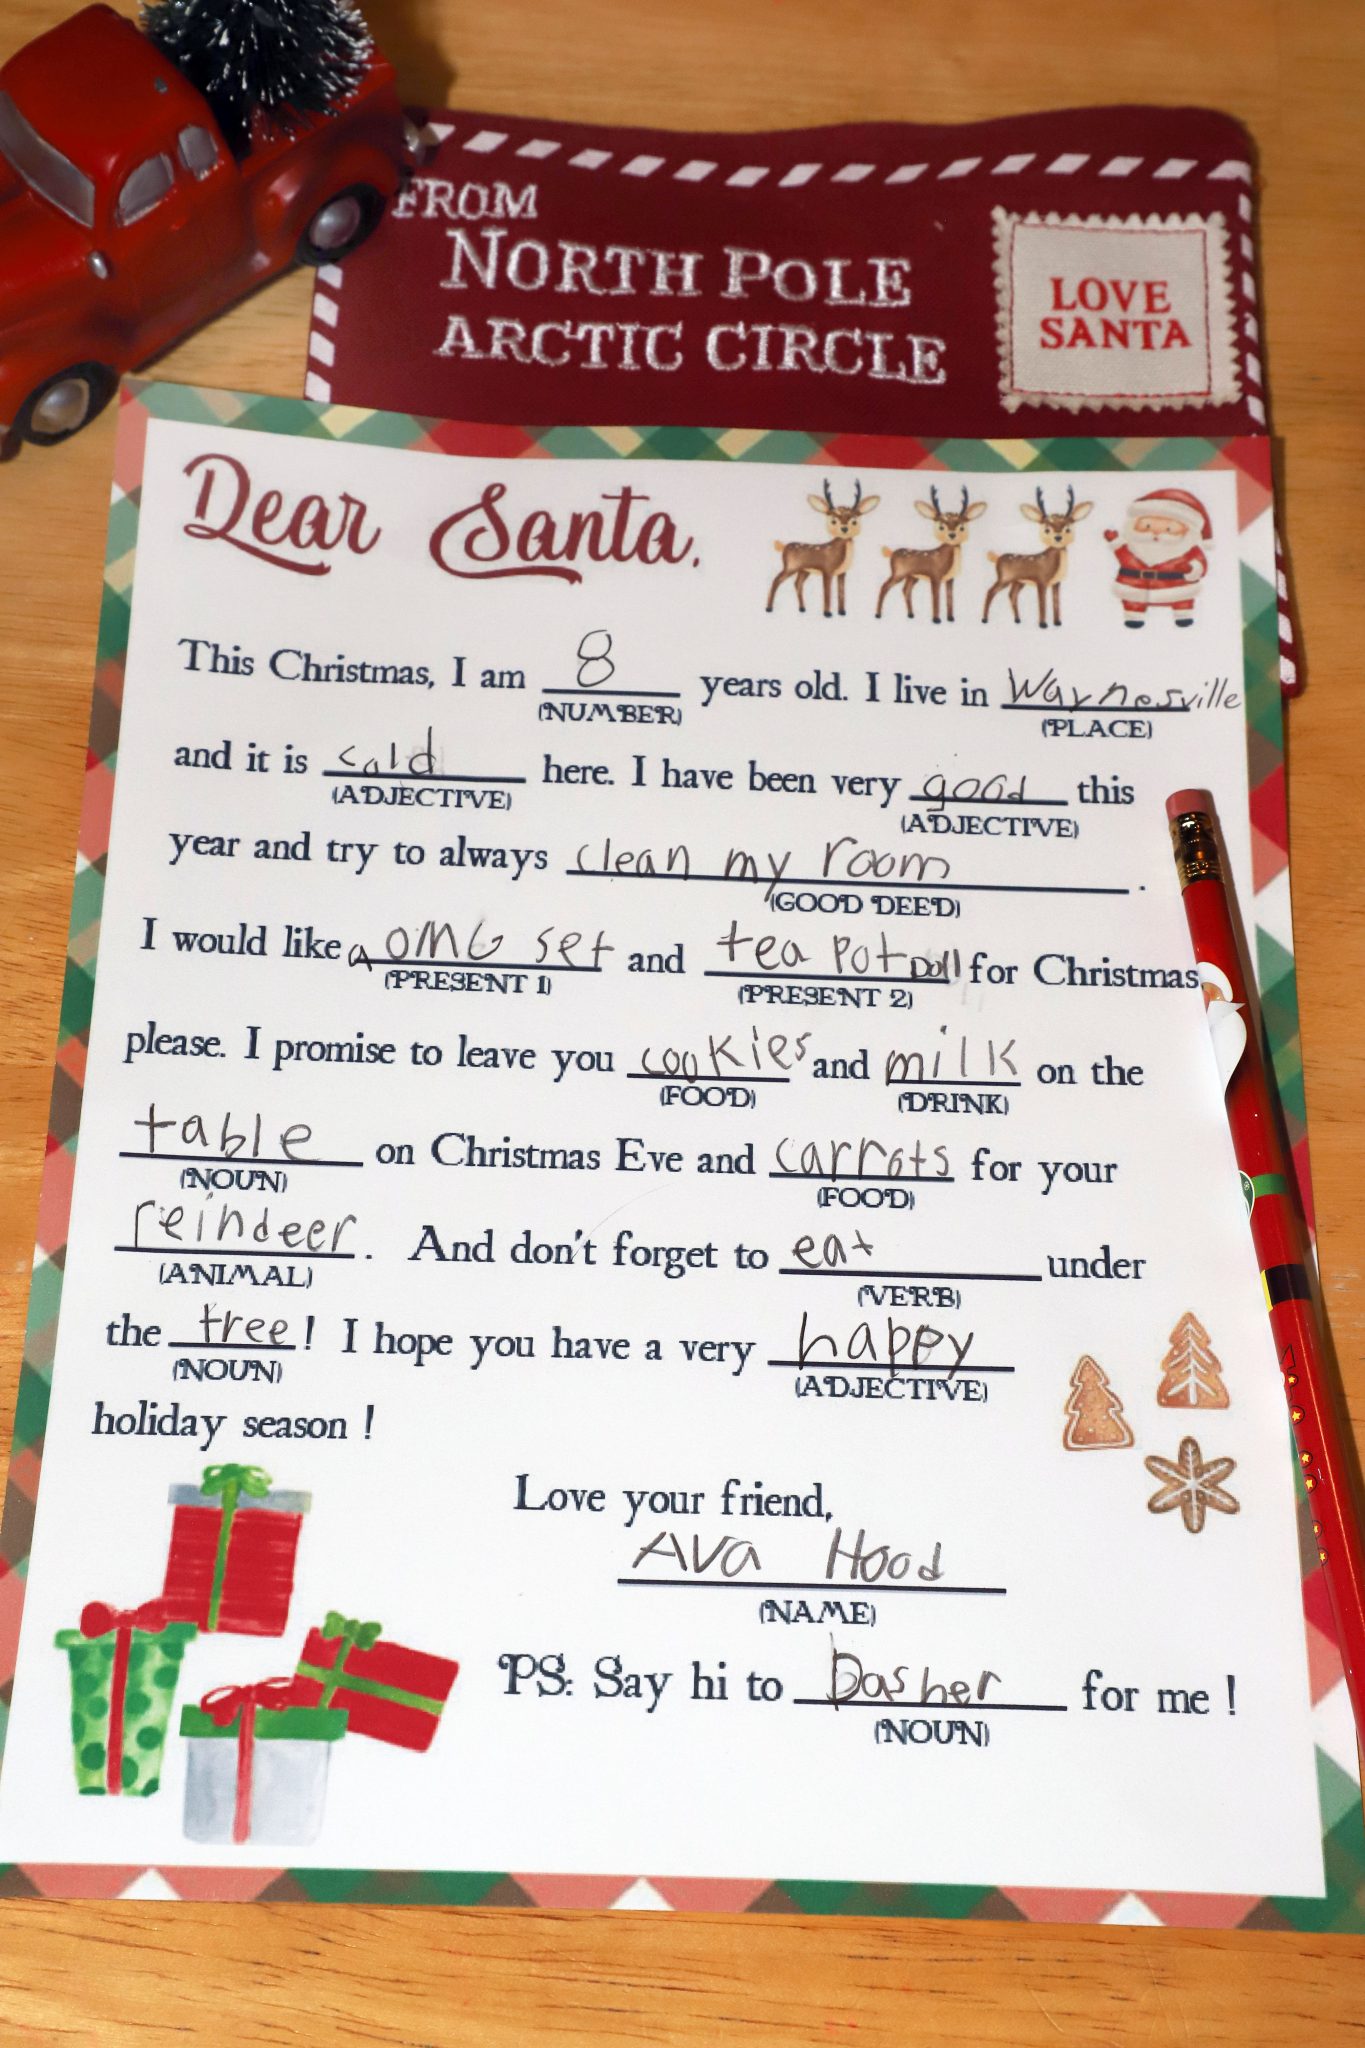 FROM
NORTH POLE
ARCTIC CIRCLE
LOVE
SANTA
Dear Santa,
This Christmas, I am 8 years old. I live in Waynesville
(NUMBER) (PLACE)
and it is cold here. I have been very good this
(ADJECTIVE) (ADJECTIVE)
year and try to always clean my room.
(GOOD DEED)
I would like a OMG set and tea pot Doll for Christmas
(PRESENT 1) (PRESENT 2)
please. I promise to leave you cookies and milk on the
(FOOD) (DRINK)
table on Christmas Eve and carrots for your
(NOUN) (FOOD)
reindeer. And don't forget to eat under
(ANIMAL) (VERB)
the tree! I hope you have a very happy
(NOUN) (ADJECTIVE)
holiday season !
Love your friend,
Ava Hood
(NAME)
PS: Say hi to Dasher for me !
(NOUN)